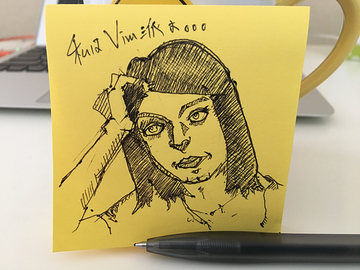 私はVim派よ。。。